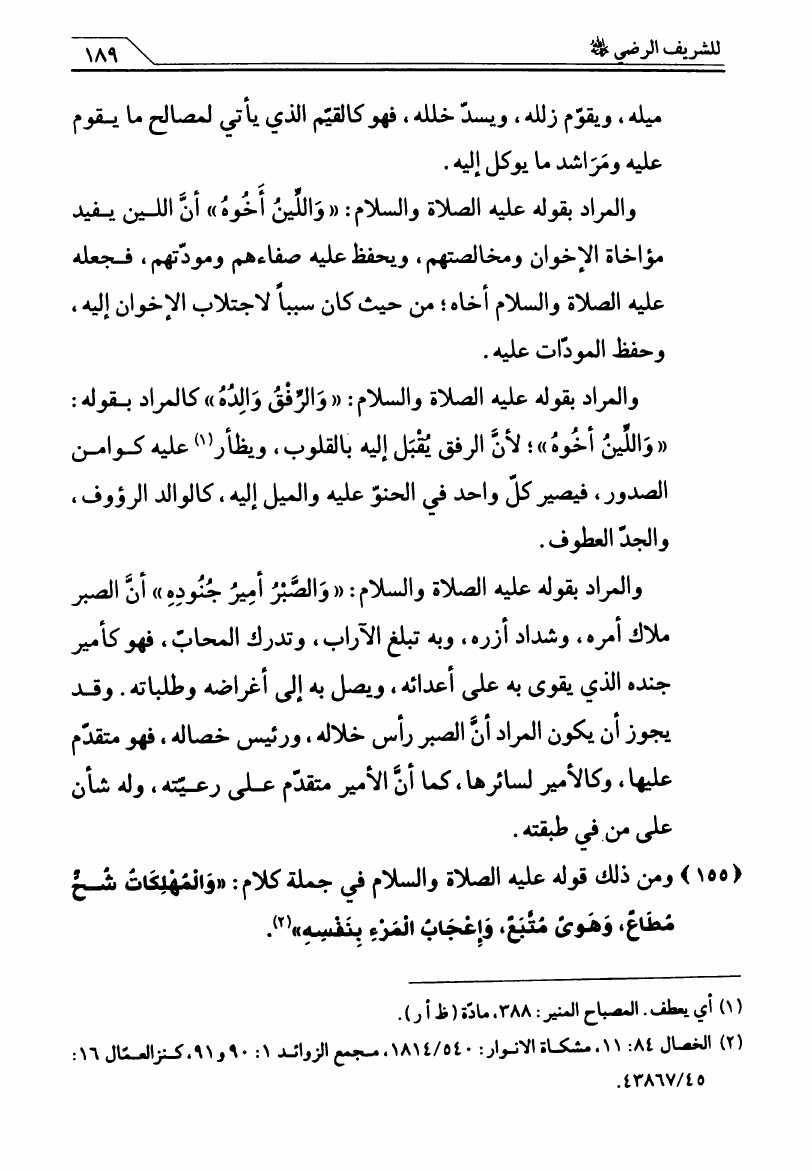 للشريف الرضي ﷺ
١٨٩
ميله، ويقوّم زلله، ويسدّ خلله، فهو كالقيّم الذي يأتي لمصالح ما يـقوم
عليه ومَرَاشد ما يوكل إليه.
والمراد بقوله عليه الصلاة والسلام: «وَاللِّينُ أَخُوهُ» أنَّ اللـين يـفيد
مؤاخاة الإخوان ومخالصتهم، ويحفظ عليه صفاءهم ومودّتهم، فـجعله
عليه الصلاة والسلام أخاه؛ من حيث كان سبباً لاجتلاب الإخوان إليه،
وحفظ المودّات عليه.
والمراد بقوله عليه الصلاة والسلام: «وَالرِّفْقُ وَالِدُهُ» كالمراد بـقوله:
«وَاللِّينُ أخُوهُ»؛ لأنَّ الرفق يُقْبَل إليه بالقلوب، ويظأر(١) عليه كـوامـن
الصدور، فيصير كلّ واحد في الحنوّ عليه والميل إليه، كالوالد الرؤوف،
والجدّ العطوف.
والمراد بقوله عليه الصلاة والسلام: «وَالصَّبْرُ أمِيرُ جُنُودِهِ» أنَّ الصبر
ملاك أمره، وشداد أزره، وبه تبلغ الآراب، وتدرك المحابّ، فهو كأمير
جنده الذي يقوى به على أعدائه، ويصل به إلى أغراضه وطلباته. وقـد
يجوز أن يكون المراد أنَّ الصبر رأس خلاله، ورئيس خصاله، فهو متقدّم
عليها، وكالأمير لسائرها، كما أنَّ الأمير متقدّم عـلـى رعـيّته، وله شأن
على من في طبقته.
(١٥٥) ومن ذلك قوله عليه الصلاة والسلام في جملة كلام: «وَالْمُهْلِكَاتُ شُـحٌّ
مُطَاعٌ، وَهَوىً مُتَّبَعٌ، وَإِعْجَابُ الْمَرْءِ بِنَفْسِهِ»(٢).
(١) أي يعطف. المصباح المنير: ٣٨٨، مادّة (ظ أ ر).
(٢) الخصال ٨٤: ١١، مشكـاة الانـوار: ١٨١٤/٥٤٠، مـجمع الزوائـد ١: ٩٠ و٩١، كـنزالعـمّال ١٦:
٤٣٨٦٧/٤٥.